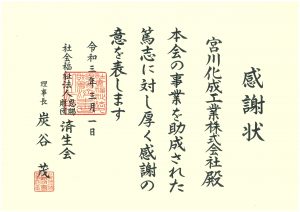 感謝状
宮川化成工業株式会社殿
本会の事業を助成された
篤志に対し厚く感謝の
意を表します
令和三年三月一日
社会福祉法人 恩賜財団 済生会
理事長 炭谷 茂